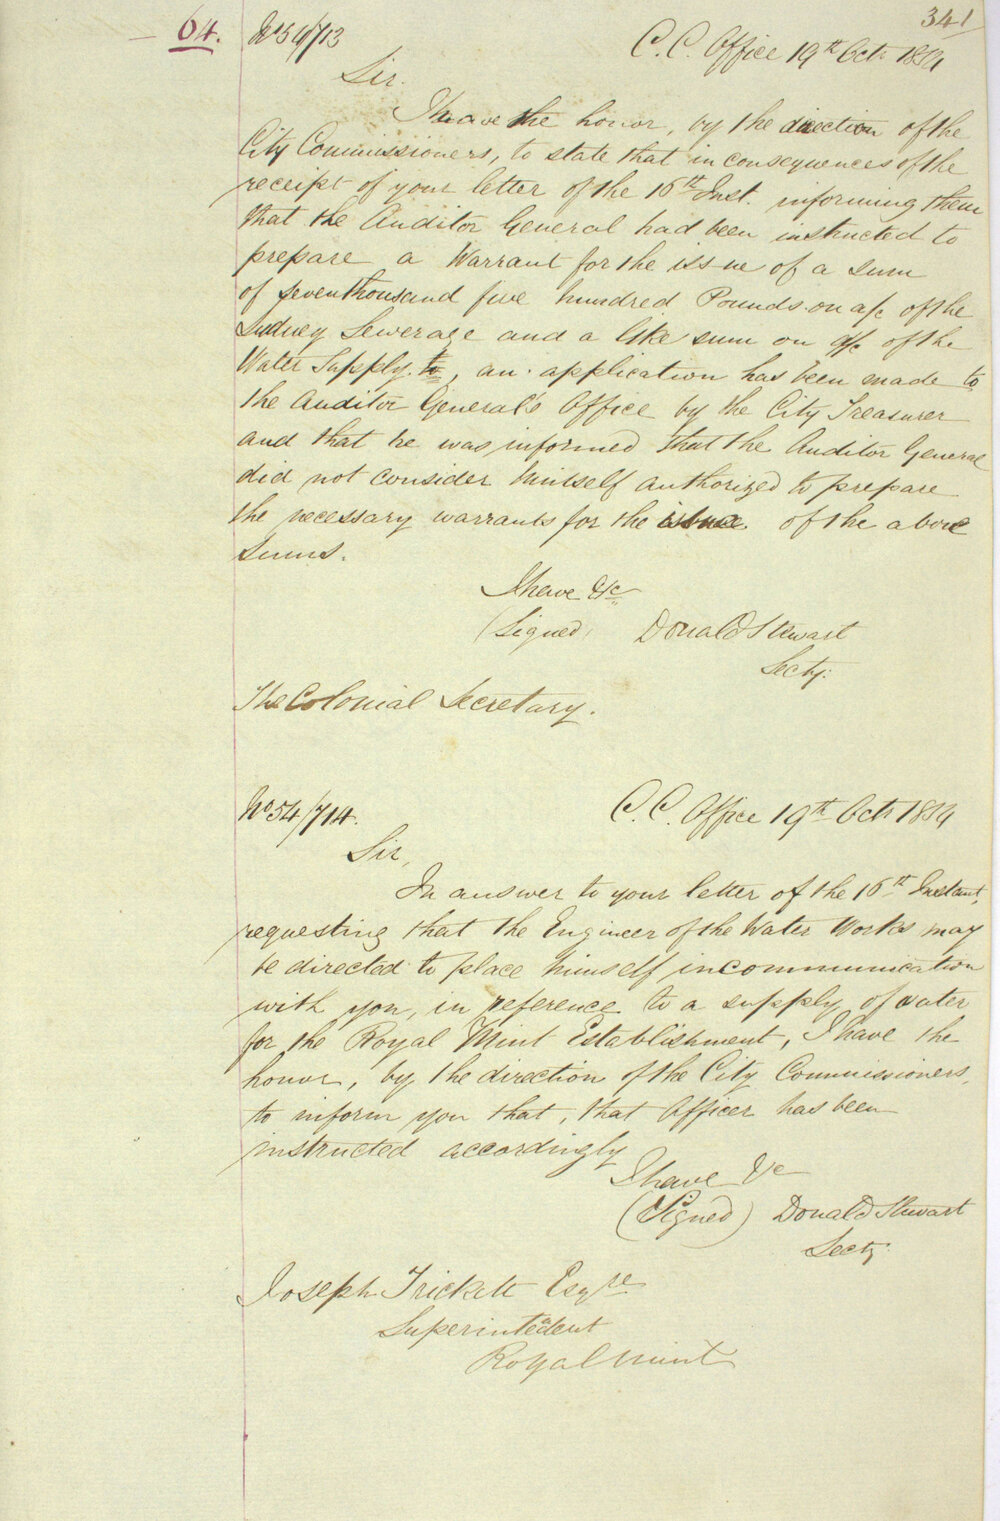 341
64. No 54/713 C. C. Office 19th Octr 1854
Sir.
I have the honor, by the direction of the
City Commissioners, to state that in consequences of the
receipt of your letter of the 16th Inst. informing them
that the Auditor General had been instructed to
prepare a Warrant for the issue of a sum
of seven thousand five hundred Pounds on a/c of the
Sydney Sewerage and a like sum on a/c of the
Water Supply to, an application has been made to
the Auditor General's Office by the City Treasurer
and that he was informed that the Auditor General
did not consider himself authorized to prepare
the necessary warrants for the issue of the above
Sums.
I have &c
(Signed) Donald Stewart
Secty.
The Colonial Secretary.
No 54/714. C. C. Office 19th Octr 1854
Sir,
In answer to your letter of the 16th Instant,
requesting that the Engineer of the Water Works may
be directed to place himself in communication
with you, in reference to a supply of water
for the Royal Mint Establishment, I have the
honor, by the direction of the City Commissioners,
to inform you that, that Officer has been
instructed accordingly
I have &c
(Signed) Donald Stewart
Secty.
Joseph Trickett Esqre
Superintendent
Royal Mint